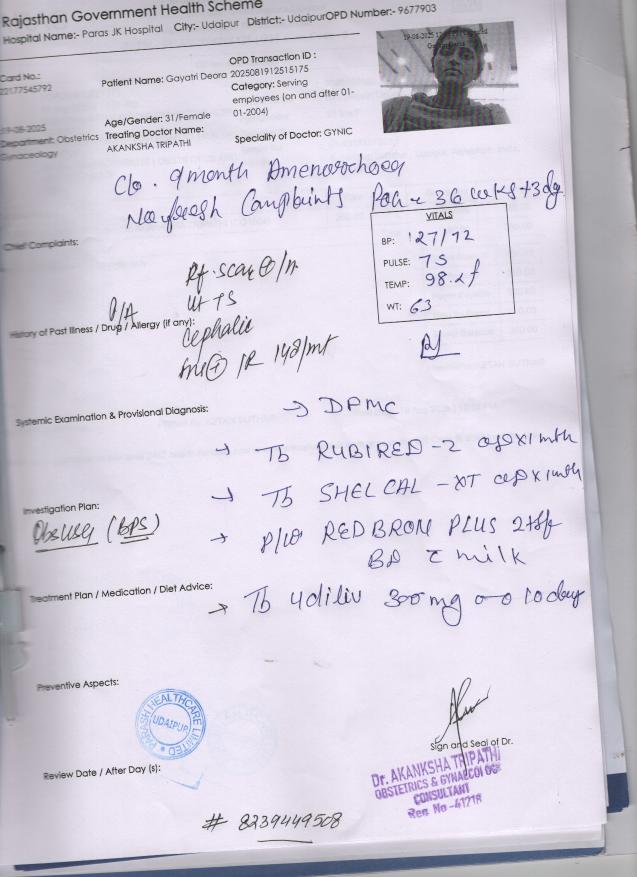 Rajasthan Government Health Scheme
Hospital Name:- Paras JK Hospital City:- Udaipur District:- UdaipurOPD Number:- 9677903
Card No.:
22177545792
Patient Name: Gayatri Deora
OPD Transaction ID :
2025081912515175
Category: Serving
employees (on and after 01-
01-2004)
19-08-2025
Department: Obstetrics
Gynaceology
Age/Gender: 31/Female
Treating Doctor Name:
AKANKSHA TRIPATHI
Speciality of Doctor: GYNIC
C/o. 9 month Amenorrhoea
No fresh Complaints POG = 36 wks+3dg
VITALS
BP: 127/72
PULSE: 75
TEMP: 98.2f
WT: 63
Chief Complaints:
P/A
ut TS
Cephalic
History of Past Illness / Drug / Allergy (if any):
148/mt
Systemic Examination & Provisional Diagnosis:
→ DFMC
→ Tb RUBIRED-2 x1mth
→ Tb SHELCAL-XT x1mth
Investigation Plan:
Obs USG (BPS)
→ REDBRON PLUS 2tsf
BD c milk
Treatment Plan / Medication / Diet Advice:
→ Tb Udiliv 300mg 10 days
Preventive Aspects:
PARASH HEALTHCARE LIMITED
UDAIPUR
Sign and Seal of Dr.
Dr. AKANKSHA TRIPATHI
OBSTETRICS & GYNAECOLOGY
CONSULTANT
Reg No -41218
Review Date / After Day (s):
# 8239449508